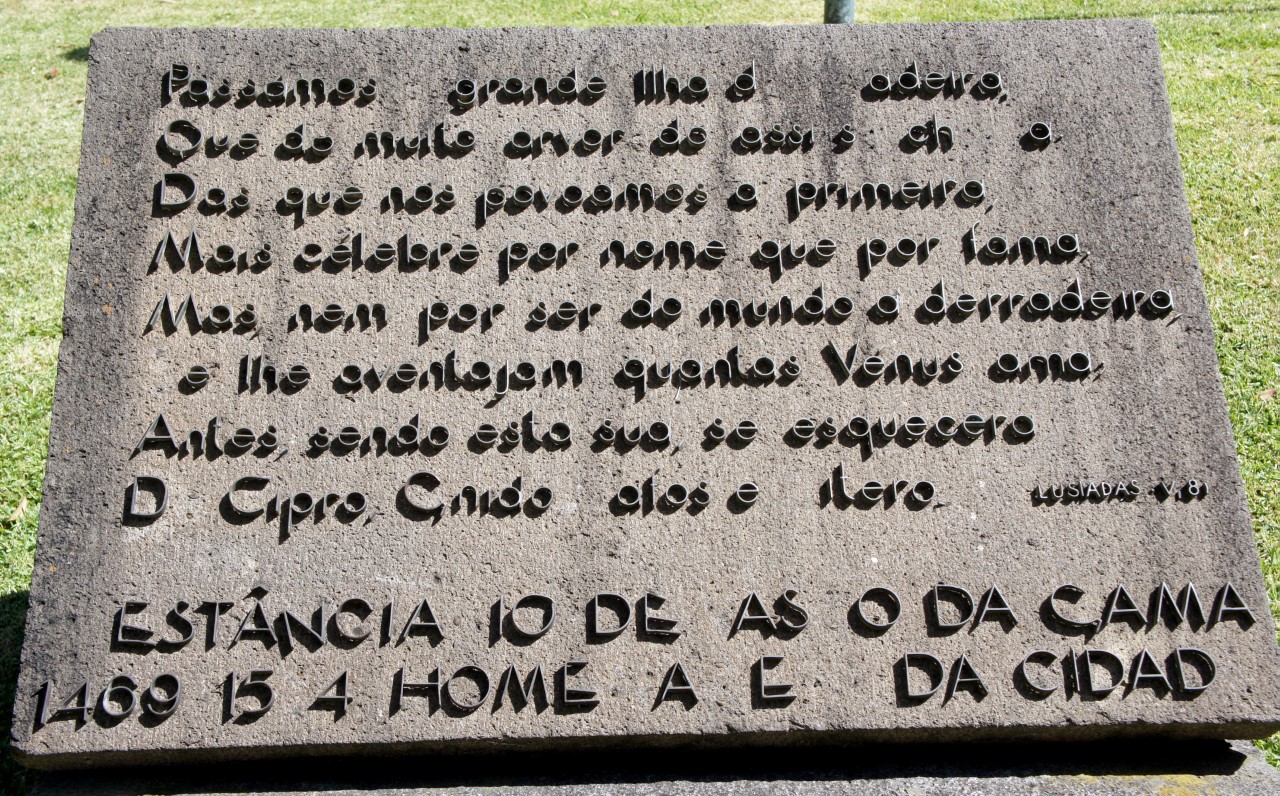 Passámos grande Ilha d adeira,
Que do muito arvor do assi s ch a
Das que nós povoámos a primeira,
Mais célebre por nome que por fama;
Mas, nem por ser do mundo a derradeira,
e lhe aventajam quantas Vénus ama;
Antes, sendo esta sua, se esquecera
D Cipro, Gnido afos e itera. LUSIADAS - V. 8
ESTÂNCIA IO DE AS O DA GAMA
1469 15 4 HOME A E DA CIDAD